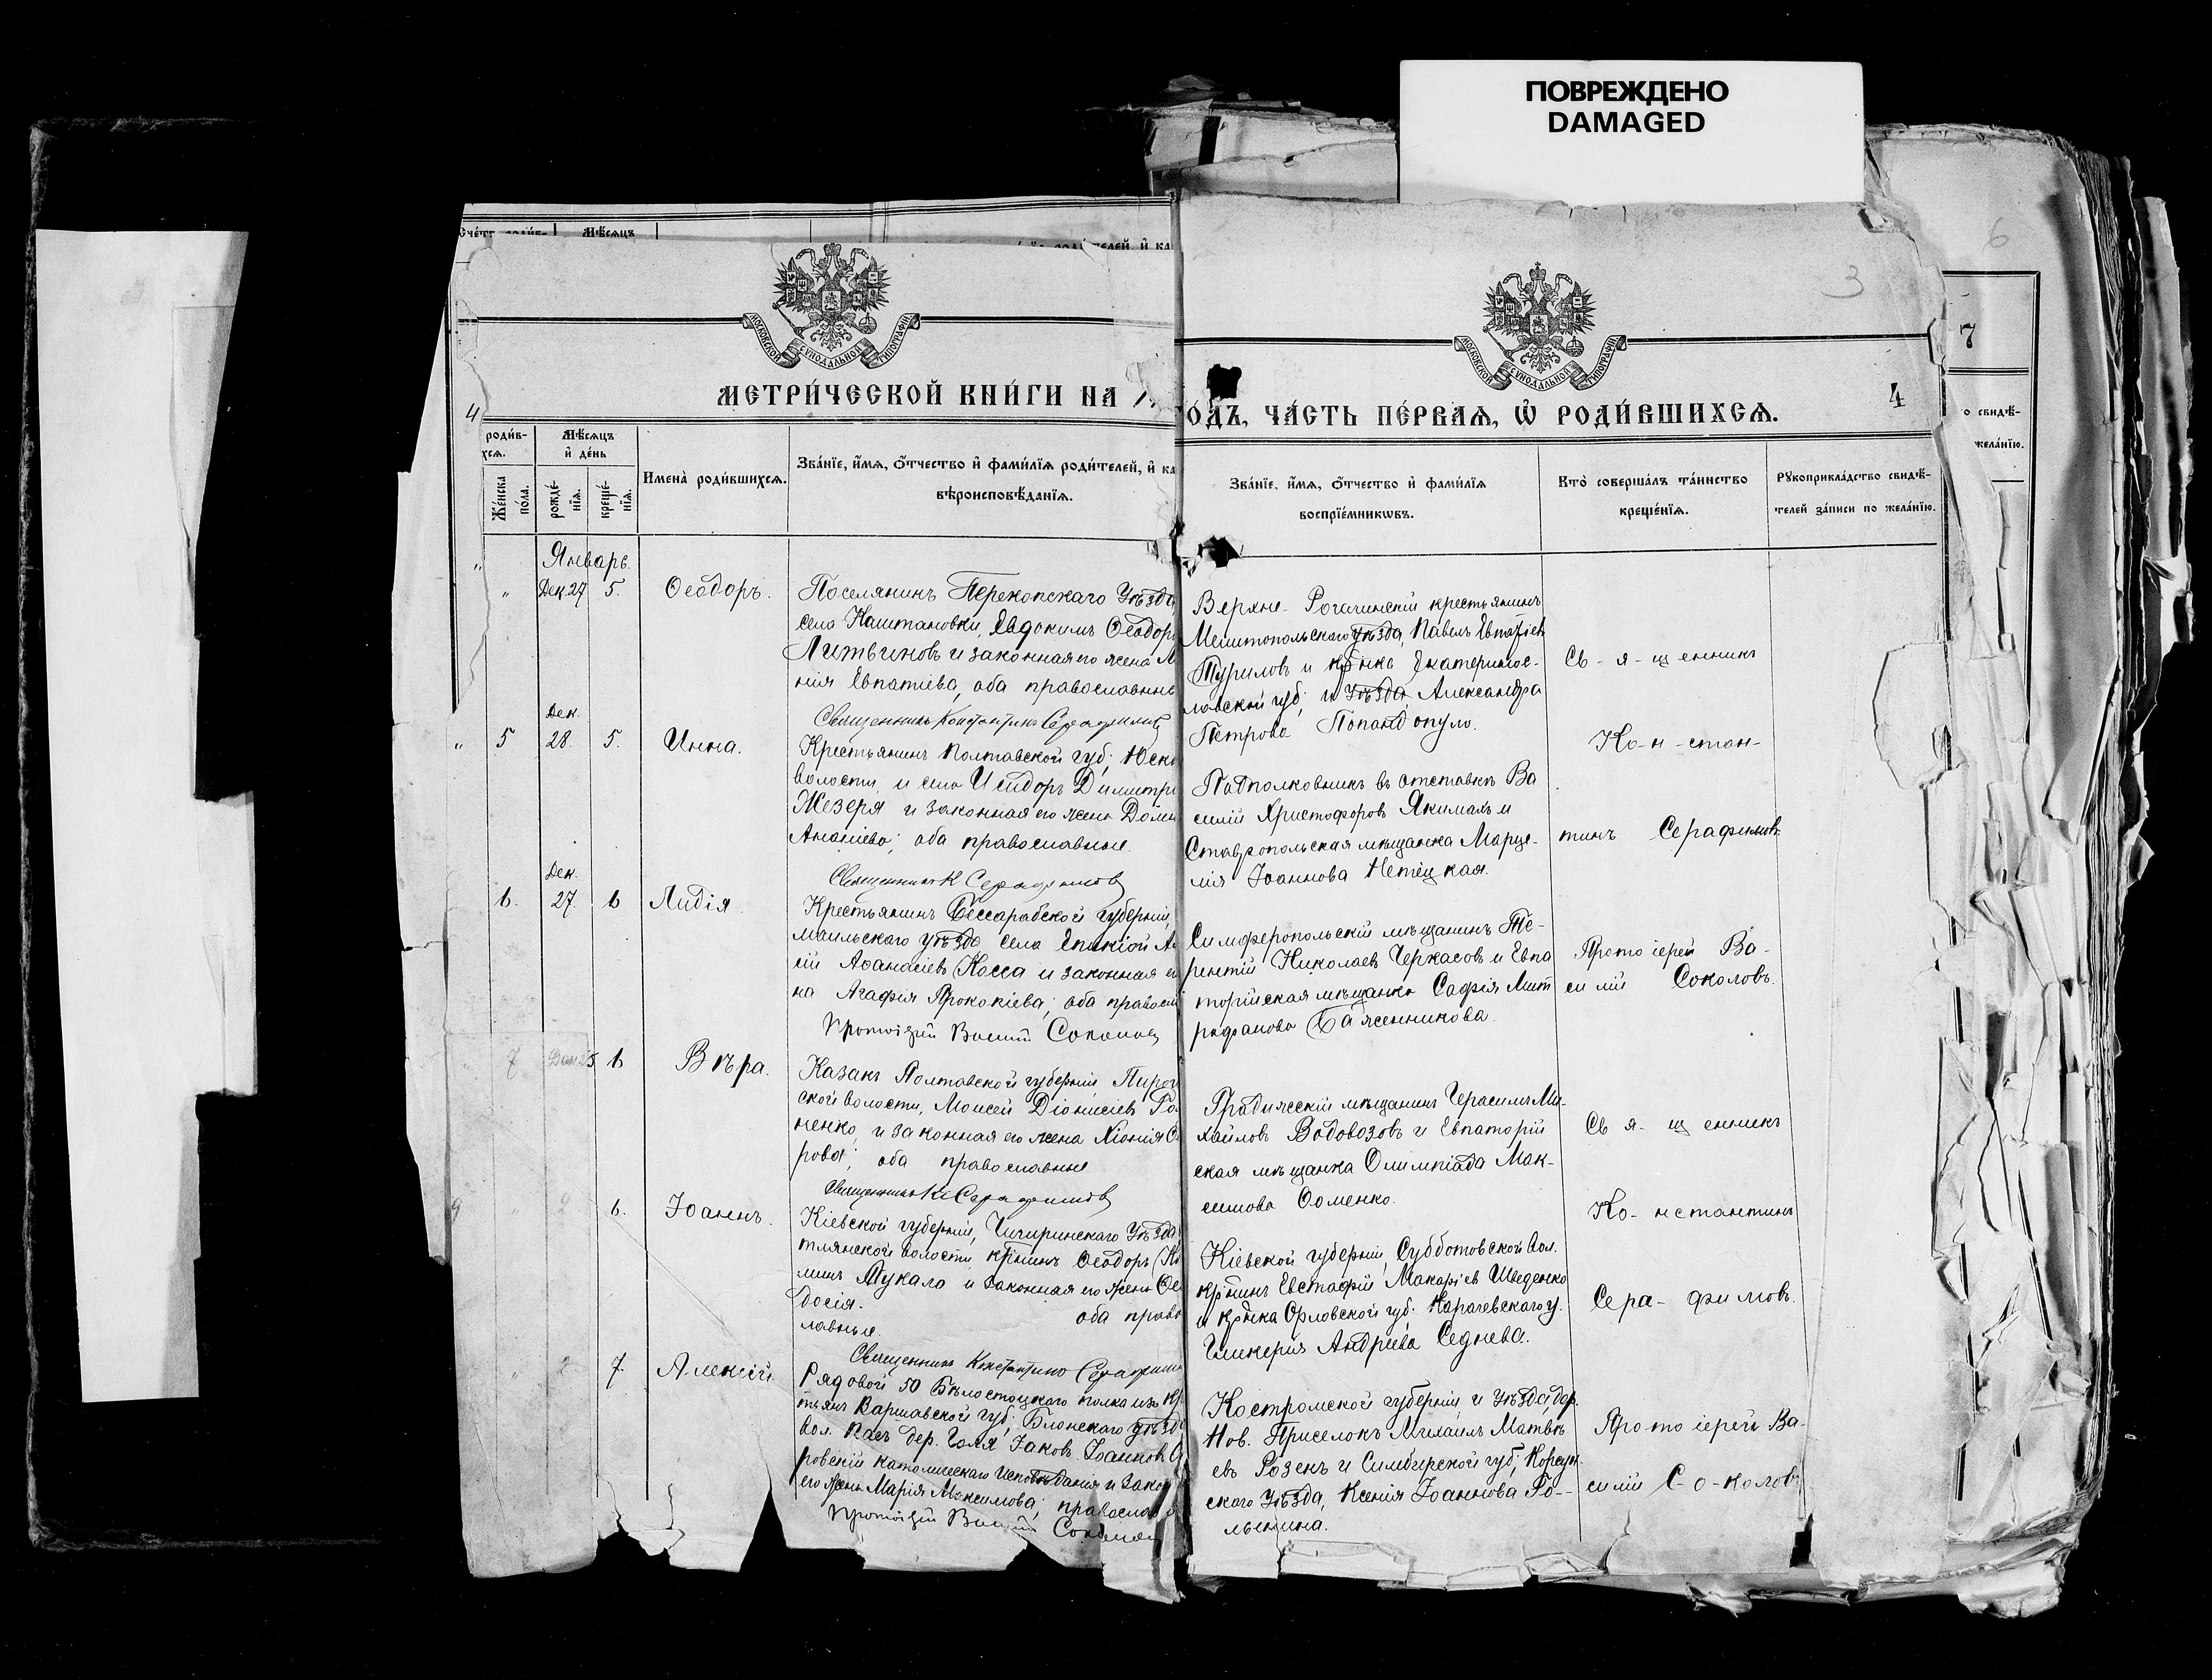 ПОВРЕЖДЕНО
DAMAGED
6
3
7
4
МОСКОВСКОЙ СѴНОДАЛЬНОЙ ТИПОГРАФІИ
МОСКОВСКОЙ СѴНОДАЛЬНОЙ ТИПОГРАФІИ
МЕТРИ́ЧЕСКОЙ КНИ́ГИ НА
ОДЪ, ЧА́СТЬ ПЕ́РВАѦ, Ѡ РОДИ́ВШИХСѦ.
4
роди́в-
хсѧ.
Же́нска по́ла.
Мѣ́сѧцъ и҆ де́нь
рожде́-нїѧ.
креще́-нїѧ.
Имена̀ роди́вшихсѧ.
Зва́нїе, и҆́мѧ, ѻ҆́тчество и҆ фами́лїѧ роди́телей, и҆ ка
вѣроисповѣ́данїѧ.
Зва́нїе, и҆́мѧ, ѻ҆́тчество и҆ фами́лїѧ
воспрїе́мникѡвъ.
Кто̀ соверша́лъ та́инство
креще́нїѧ.
Рꙋкоприкла́дство свидѣ́-
телей за́писи по жела́нїю.
о свидѣ́-
жела́нїю.
Январь.
Дек. 27 5. Ѳеодоръ.
Поселянинъ Перекопскаго Уѣзда
села Каштановки, Евдокимъ Ѳеодор
Литвиновъ и законная его жена М
нія Евпатіева, оба православные
Священникъ Константинъ Серафимовъ
Верхне-Рогачинскій крестьянинъ
Мелитопольскаго Уѣзда, Павелъ
Туриловъ и кр-нка Екатеринос-
лавской губ; и Уѣзда, Александра
Петрова Попандопуло.
Св-я-щенникъ
5 Дек. 28. 5. Инна.
Крестьянинъ Полтавской губ;
волости, и села Исидоръ Димитрі
Жезеря и законная его жена Домн
Ананіева; оба православные.
Священникъ К Серафимовъ
Подполковникъ въ отставкѣ Ва
силій Христофоровъ Якимахъ и
Ставропольская мѣщанка Марце-
лія Іоаннова Нетецкая.
Ко-н-стан-
тинъ Серафимовъ
6. Дек. 27. 6 Лидія
Крестьянинъ Бессарабской губерніи,
маильскаго уѣзда, села
сій Аѳанасіевъ Косса и законная е
на Агафія Прокопіева; оба правосл
Протоіерей Василій Соколовъ
Симферопольскій мѣщанинъ Те-
рентій Николаевъ Черкасовъ и Евпа
торійская мѣщанка Софія Мит
рофанова Баженникова.
Протоіерей Ва-
силій Соколовъ.
7 Дек 25 6 Вѣра.
Казакъ Полтавской губерніи,
ской волости, Моисей Діонисіевъ Ро
ненко, и законная его жена Хіонія
рова; оба православные
Священникъ К Серафимовъ
Градижскій мѣщанинъ Герасимъ Ми-
хайловъ Водовозовъ и Евпаторій
ская мѣщанка Олимпіада Мак-
симова Ѳоменко.
Св я-щенникъ
2 6. Іоаннъ.
Кіевской губерніи, Чигиринскаго Уѣзда
тлянской волости, кр-нинъ Ѳеодоръ
минъ Мукало и законная его жена Ѳе
досія. оба право
лавные.
Священникъ Константинъ Серафимовъ
Кіевской губерніи, Субботовской вол.
кр-нинъ Евстафій Макаріевъ Шведенко
и кр-нка Орловской губ. Карачевскаго у.
Гликерія Андріева Седнева.
Ко-нстантинъ
Сера-фимовъ.
2 7. Алексій.
Рядовой 50 Бѣлостоцкаго полка изъ кр
тьянъ Варшавской губ; Блонскаго уѣзда
вол. Пасъ дер. Голя Іаковъ Іоанновъ
ровскій католическаго исповѣданія и закон
его жена Марія Максимова; православн
Протоіерей Василій Соколовъ
Костромской губерніи и Уѣзда, дер.
Нов. Приселокъ Михаилъ Матвѣ-
евъ Розенъ и Симбирской губ, Корсун-
скаго Уѣзда, Ксенія Іоаннова Ро-
Протоіерей Ва-
силій С-о-коловъ